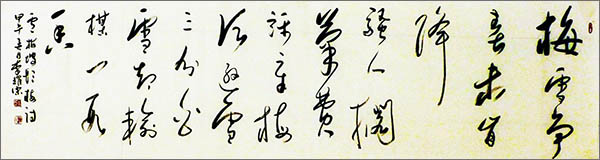 梅雪爭
春未肯
降
騷人擱
筆費
評章梅
須遜雪
三分白
雪却輸
梅一段
香
雪梅
甲午